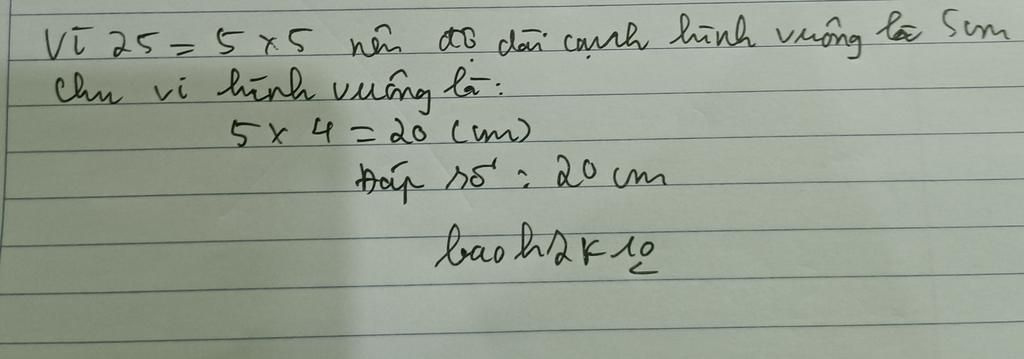 Vì 25 = 5 x 5 nên độ dài cạnh hình vuông là 5cm
Chu vi hình vuông là:
5 x 4 = 20 (cm)
Đáp số : 20 cm
baoh2k10